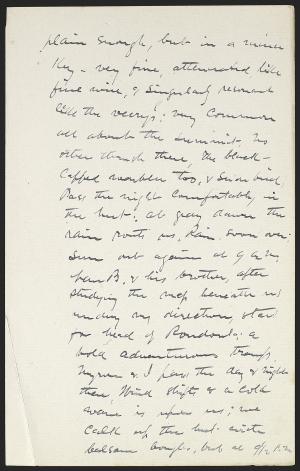 plain enough, but in a minor
key - very fine, attenuated like
fine wire, & singularly resonant
like the veery's; very common
all about the summit, no
other thrush there, the black-
capped warbler too, & snow bird,
Pass the night comfortably in
the hut; at gray dawn the
rain routs us. Rain soon over.
Sun out again at 9 a.m.
B. & his brother, after
studying the map beneath us
under my direction, start
for head of Rondout; a
bold adventurous tramp,
Myron & I pass the day & night
there, Wind shifts & a cold
wave is upon us; we
calk up the hut with
balsam boughs, but at 9 1/2 P.M.